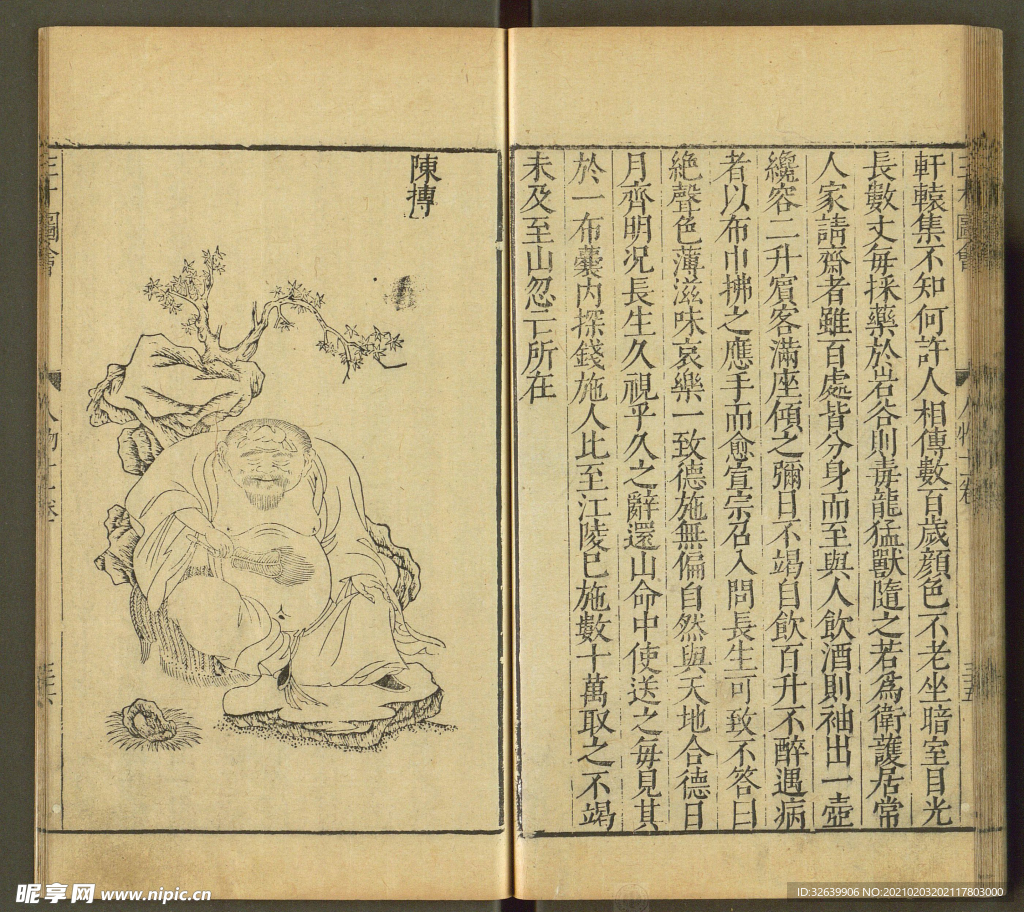 三才圖會
人物十一卷
三十五
軒轅集不知何許人相傳數百歲顔色不老坐暗室目光
長數丈每採藥於岩谷則毒龍猛獸隨之若爲衛護居常
人家請齋者雖百處皆分身而至與人飲酒則袖出一壺
纔容二升賓客滿座傾之彌日不竭自飲百升不醉遇病
者以布巾拂之應手而愈宣宗召入問長生可致不答曰
絶聲色薄滋味哀樂一致德施無偏自然與天地合德日
月齊明况長生久視乎久之辭還山命中使送之每見其
於一布囊内探錢施人比至江陵已施數十萬取之不竭
未及至山忽亡所在
陳摶
三才圖會
人物十一卷
三十六
昵享网 www.nipic.cn
ID:32639906 NO:20210203202117803000